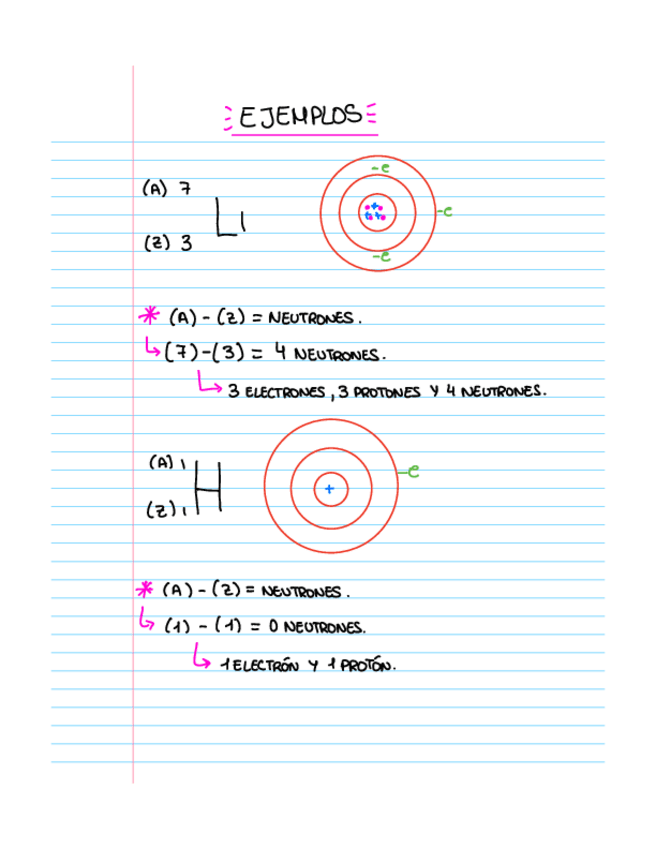 EJEMPLOS
(A) 7
Li
(Z) 3
-e
-e
-e
+
+ +
* (A) - (Z) = NEUTRONES.
(7)-(3) = 4 NEUTRONES.
3 ELECTRONES, 3 PROTONES Y 4 NEUTRONES.
(A) 1
H
(Z) 1
-e
+
* (A) - (Z) = NEUTRONES.
(1) - (1) = 0 NEUTRONES.
1 ELECTRÓN Y 1 PROTÓN.